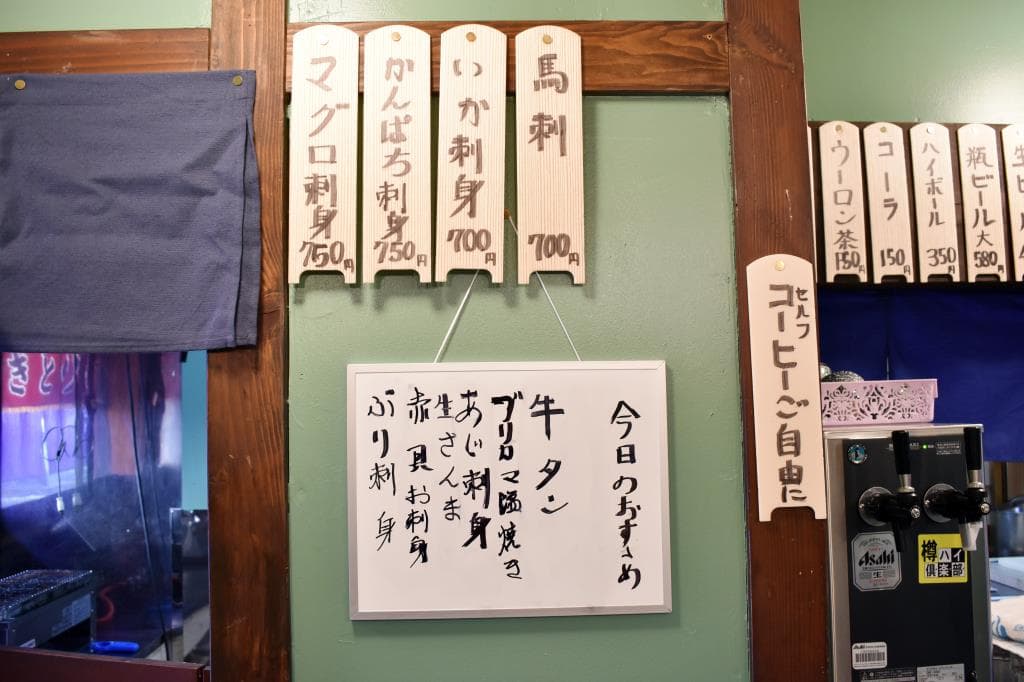 馬刺 700円
いか刺身 700円
かんぱち刺身 750円
マグロ刺身 750円
今日のおすすめ
牛タン
ブリカマ塩焼き
あじ刺身
生さんま
赤貝お刺身
ぶり刺身
セルフ
コーヒーご自由に
瓶ビール大 580円
ハイボール 350円
コーラ 150円
ウーロン茶 150円
きとり
Asahi
生
樽ハイ
倶楽部
Asahi